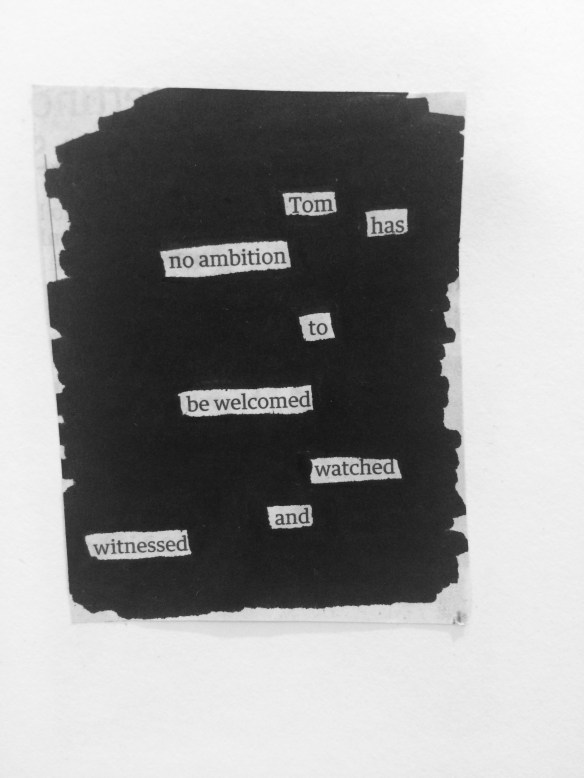 Tom
has
no ambition
to
be welcomed
watched
and
witnessed